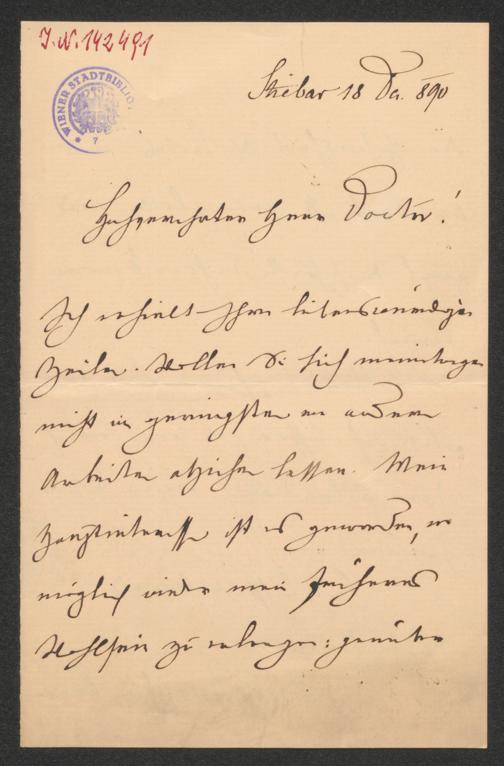 J.N. 142491
WIENER STADTBIBLIOT
Stiebar 18 Dec. 890
Hochverehrter Herr Doctor!
Ich erhielt Ihre liebenswürdigen
Zeilen. Wollen Sie sich meinetwegen
nicht im geringsten an andern
Arbeiten abziehen lassen. Mein
Hauptinteresse ist es geworden, wo
möglich wieder mein früheres
Wohlsein zu erlangen: